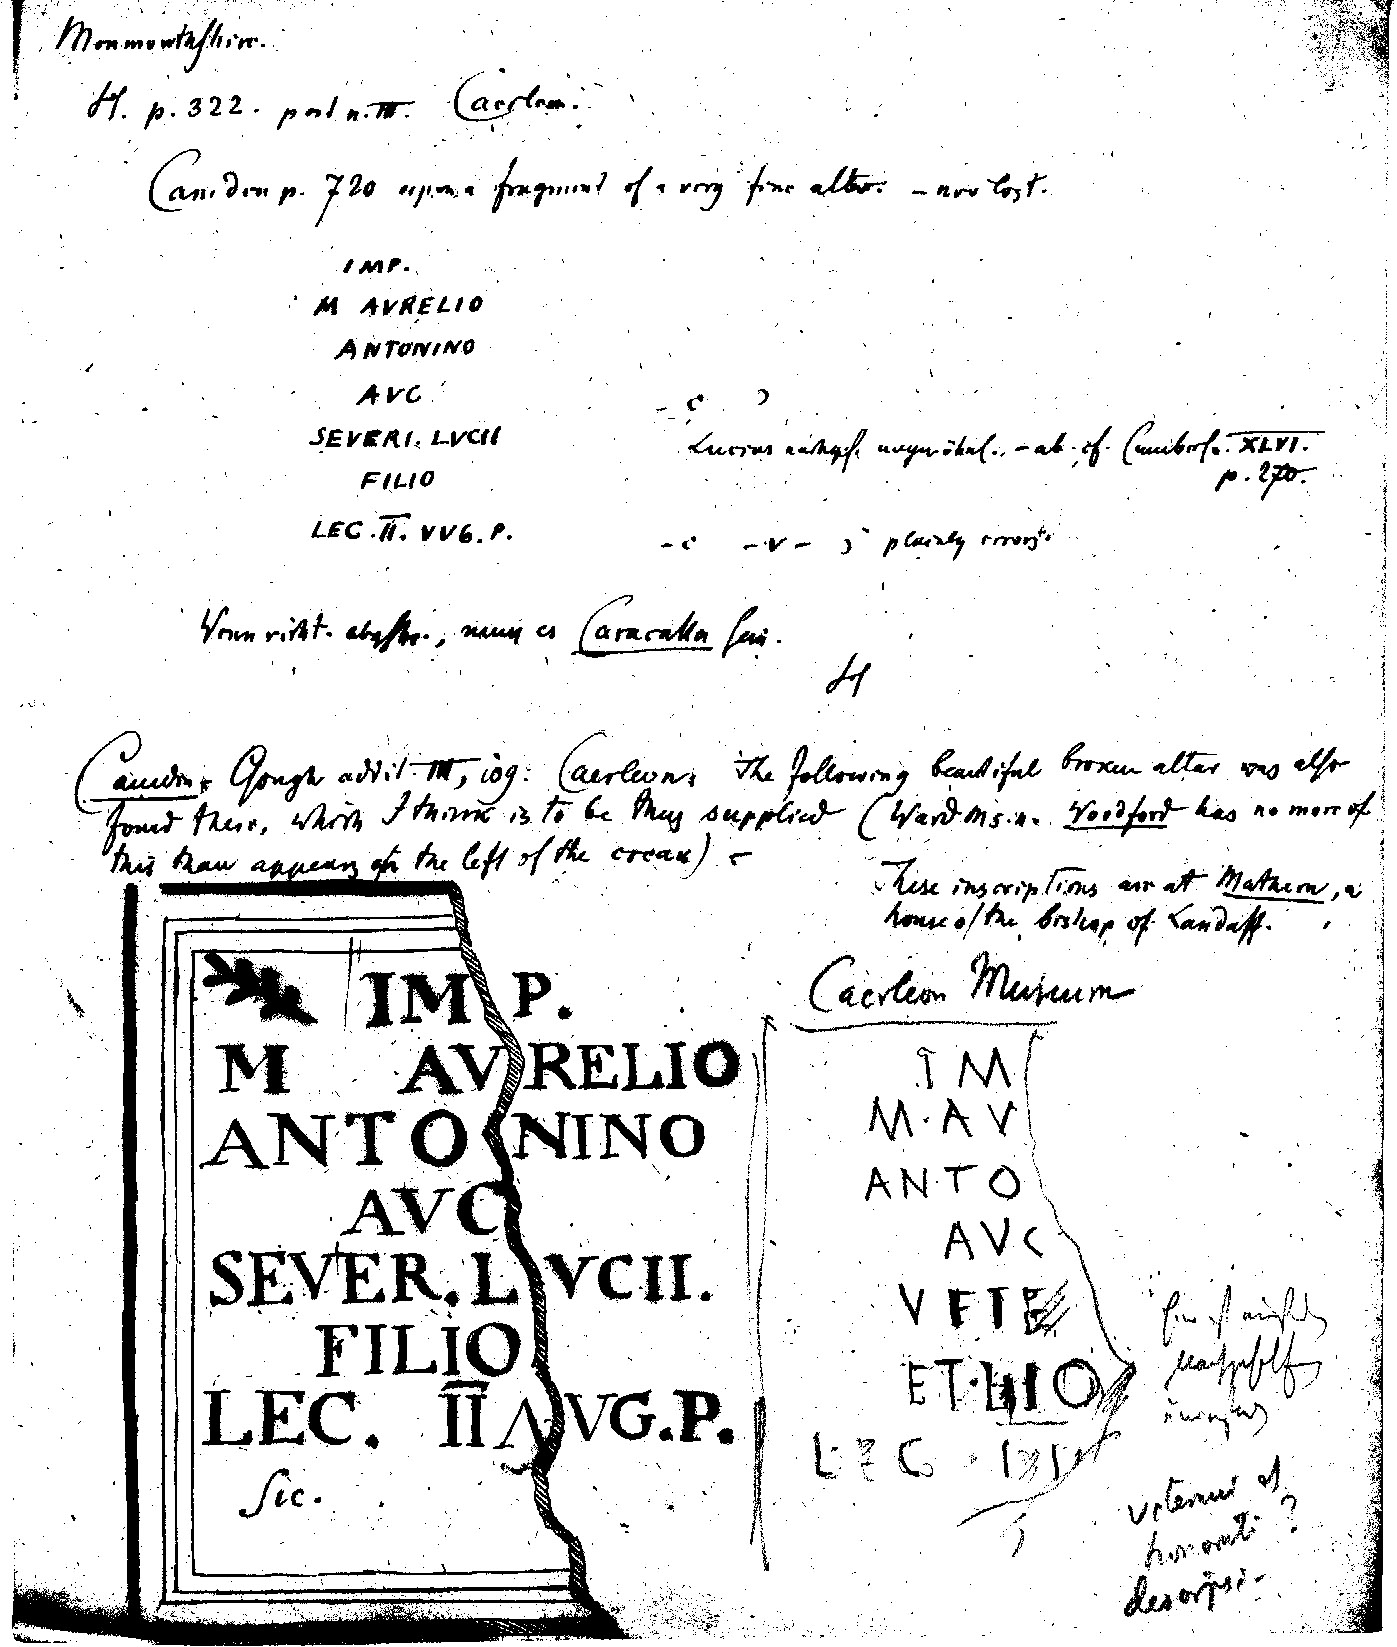 Monmouthshire.
H. p. 322. post n. III. Caerleon.
Camden p. 720 upon a fragment of a very fine altar. – now lost.
IMP.
M AVRELIO
ANTONINO
AVC
SEVERI. LVCII
FILIO
LEC. II. VVG. P.
Lucius – ab. cf. XLVI.
p. 270.
– c – v – plainly errors.
Caracalla
H
Camden, Gough addit. III, 109. Caerleon. The following beautiful broken altar was also
found there, which I think is to be thus supplied (Ward ms. n. Woodford has no more of
this than appears on the left of the crack) –
These inscriptions are at Mathern, a
house of the bishop of Landaff.
IMP.
M AVRELIO
ANTONINO
AVC
SEVER. LVCII.
FILIO
LEC. II AVG. P.
Sic.
Caerleon Museum
IM
M. AV
ANTO
AVC
VETE
ET. LIO
LEG.
descripsi